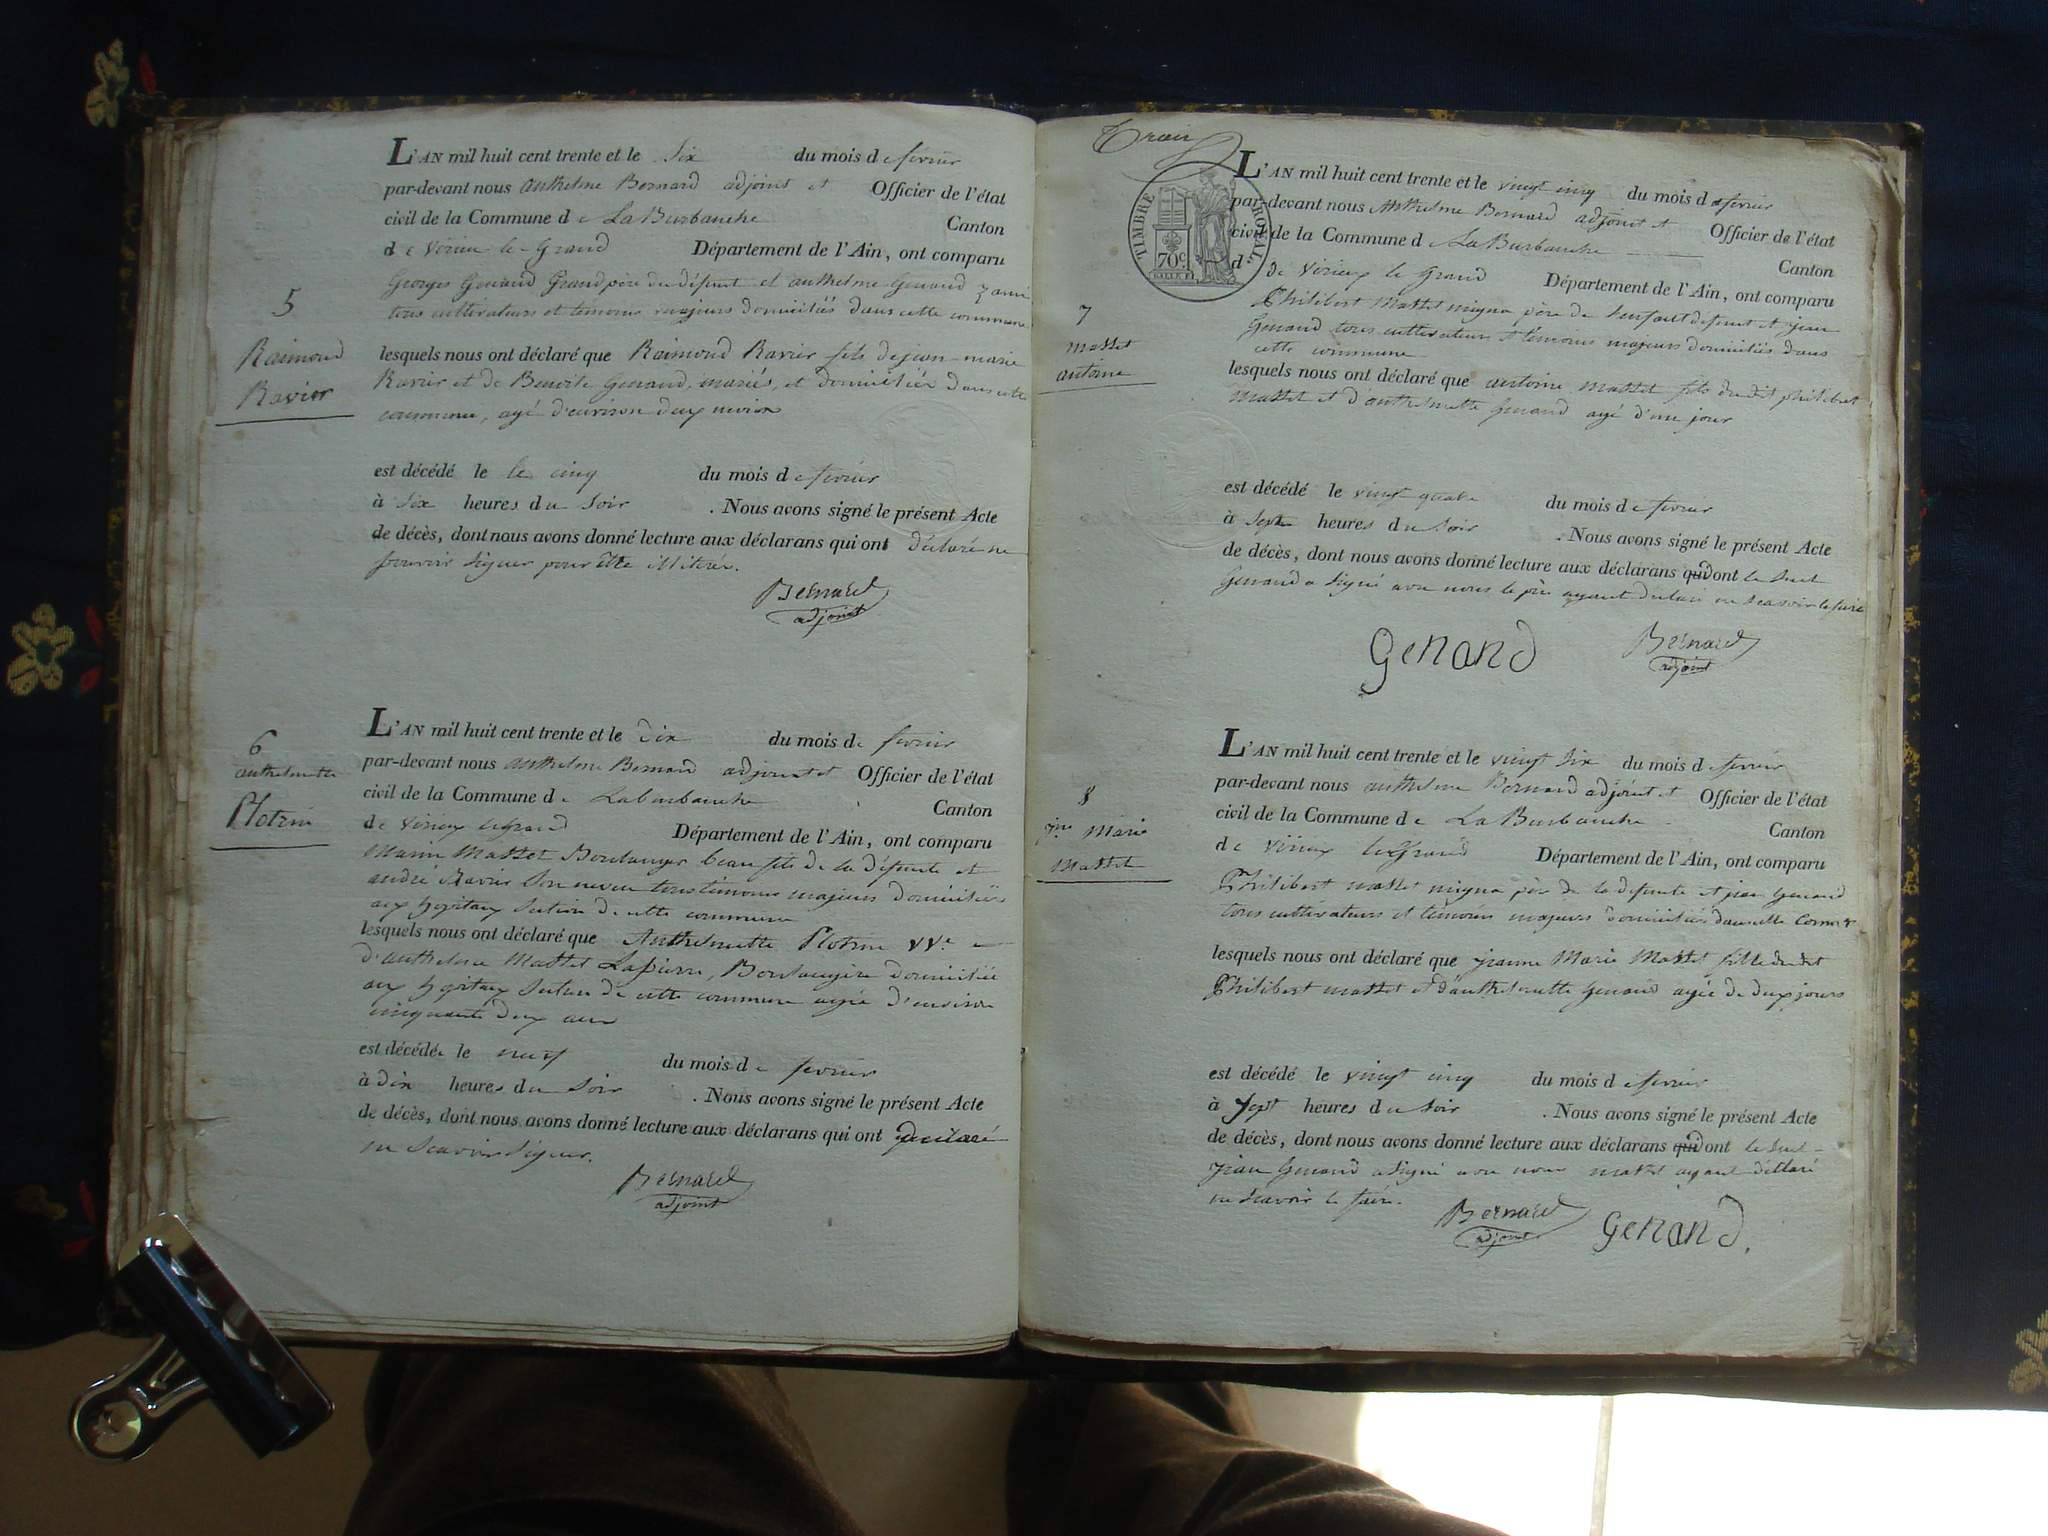 L'AN mil huit cent trente et le Six du mois de fevrier
par-devant nous anthelme Bernard adjoint et Officier de l'état
civil de la Commune de La Burbanche Canton
de virieu le Grand Département de l'Ain, ont comparu
Georges Genand Grand père du défunt et anthelme Genand
tous cultivateurs et témoins majeurs domiciliés dans cette commune
5
Raimond
Ravier
lesquels nous ont déclaré que Raimond Ravier fils de jean-marie
Ravier et de Benoite Genand, mariés, et domiciliés dans cette
commune, agé d'environ deux mois
est décédé le le cinq du mois de fevrier
à six heures du Soir . Nous avons signé le présent Acte
de décès, dont nous avons donné lecture aux déclarans qui ont déclaré ne
pouvoir signer pour être illiteré.
Bernard
adjoint
6
anthelmette
Plotrin
L'AN mil huit cent trente et le dix du mois de fevrier
par-devant nous anthelme Bernard adjoint et Officier de l'état
civil de la Commune de Laburbanche Canton
de virieux legrand Département de l'Ain, ont comparu
Marin Mattet Boulanger beau fils de la défunte et
andré Ravier Son neveu tous témoins majeurs domiciliés
aux hopitaux Section de cette commune
lesquels nous ont déclaré que Anthelmette Plotrin vve
d'anthelme Mattet Lapierre, Boulangère domiciliée
aux hopitaux Section de cette commune agée d'environ
cinquante deux ans
est décédée le neuf du mois de fevrier
à dix heures du Soir . Nous avons signé le présent Acte
de décès, dont nous avons donné lecture aux déclarans qui ont declaré
ne Scavoir Signer.
Bernard
adjoint
Trois
TIMBRE ROYAL
70c
L'AN mil huit cent trente et le vingt cinq du mois de fevrier
par-devant nous Anthelme Bernard adjoint et Officier de l'état
civil de la Commune de La Burbanche Canton
d de Virieux le Grand Département de l'Ain, ont comparu
Philibert Mattet migna père de l'enfant defunt et jean
Genand tous cultivateurs et témoins majeurs domiciliés dans
cette commune
7
mattet
antoine
lesquels nous ont déclaré que antoine mattet fils du dit philibert
Mattet et d'anthelmette Genand agé d'un jour
est décédé le vingt quatre du mois de fevrier
à Sept heures du Soir . Nous avons signé le présent Acte
de décès, dont nous avons donné lecture aux déclarans qui dont le Seul
Genand a Signé avec nous le père ayant déclaré ne Scavoir le faire
Genand
Bernard
adjoint
8
jne Marie
Mattet
L'AN mil huit cent trente et le vingt Six du mois de fevrier
par-devant nous anthelme Bernard adjoint et Officier de l'état
civil de la Commune de La Burbanche Canton
de Virieux le Grand Département de l'Ain, ont comparu
Philibert mattet migna père de la defunte et jean Genand
tous cultivateurs et témoins majeurs domiciliés dans cette
lesquels nous ont déclaré que jeanne Marie Mattet fille du dit
Philibert mattet et d'anthelmette Genand agée de deux jours
est décédé le vingt cinq du mois de fevrier
à Sept heures du Soir . Nous avons signé le présent Acte
de décès, dont nous avons donné lecture aux déclarans qui dont le Seul
jean Genand a Signé avec nous mattet ayant déclaré
ne Scavoir le faire.
Bernard
adjoint
Genand.